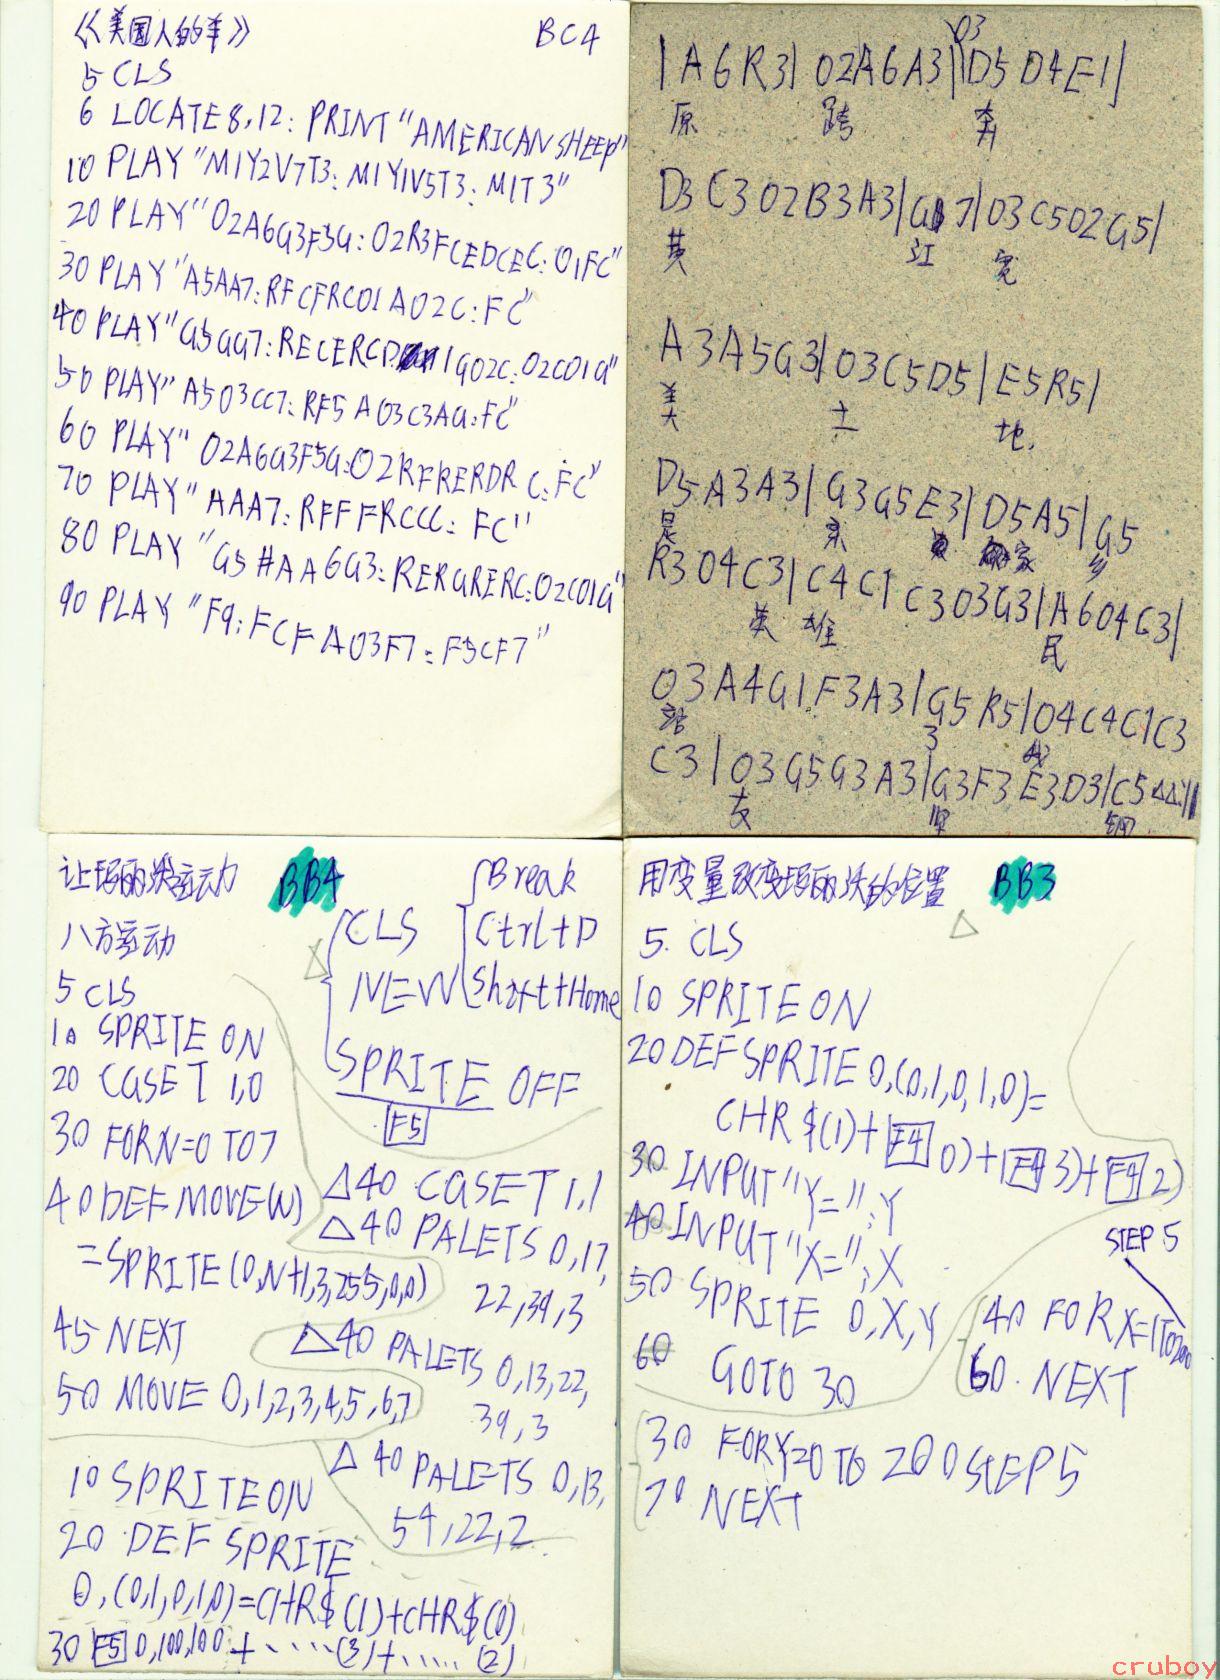 《美国人的羊》 BC4
5 CLS
6 LOCATE8,12: PRINT "AMERICAN SHEEP"
10 PLAY "M1Y2V7T3: M1Y1V5T3: M1T3"
20 PLAY "O2A6G3F5G: O2R3FCEDCEC: O1FC"
30 PLAY "A5AA7: RFCFRCO1AO2C: FC"
40 PLAY "G5GG7: RECERCD1GO2C: O2CO1G"
50 PLAY "A5O3CC7: RF5AO3C3AG: FC"
60 PLAY "O2A6G3F5G: O2RFRERDRC: FC"
70 PLAY "AAA7: RFFFRCCC: FC"
80 PLAY "G5#AA6G3: RERGRERC: O2CO1G"
90 PLAY "F9: FCFAO3F7: F5CF7"
O3
|A6R3| O2A6A3|D5D4E1|
原 跨 奔
D3C3O2B3A3|G7|O3C5O2G5|
黄 江 宽
A3A5G3|O3C5D5|E5R5|
美 土 地.
D5A3A3|G3G5E3|D5A5|G5
是 家 乡
R3O4C3|C4C1C3O3G3|A6O4C3|
英 雄 民
O3A4G1F3A3|G5R5|O4C4C1C3
站 3
C3|O3G5G3A3|G3F3E3D3|C5△△Y||
友 钢
让玛丽沃运动 BB4
八方运动
5 CLS
10 SPRITE ON
20 CGSET 1,0
30 FOR N=0 TO 7
40 DEF MOVE(N)
=SPRITE(0,N+1,3,255,0,0)
45 NEXT
50 MOVE 0,1,2,3,4,5,6,7
10 SPRITE ON
20 DEF SPRITE
0,(0,1,0,1,0)=CHR$(1)+CHR$(0)
30 F5 0,100,100 +·····(3)+.....(2)
CLS
NEW
SPRITE OFF
F5
Break
Ctrl+D
Shift+Home
△40 CGSET 1,1
△40 PALETS 0,17,
22,39,3
△40 PALETS 0,13,22,
39,3
△40 PALETS 0,13,
54,22,2
用变量改变玛丽沃的位置 BB3
△
5. CLS
10 SPRITE ON
20 DEF SPRITE 0,(0,1,0,1,0)=
CHR$(1)+F4 0)+F4 3)+F4 2)
30 INPUT "Y=";Y
40 INPUT "X=";X
50 SPRITE 0,X,Y
60 GOTO 30
STEP 5
40 FOR X=1TO200
60. NEXT
30 FOR Y=0 TO 200 STEP 5
70 NEXT
cruboy